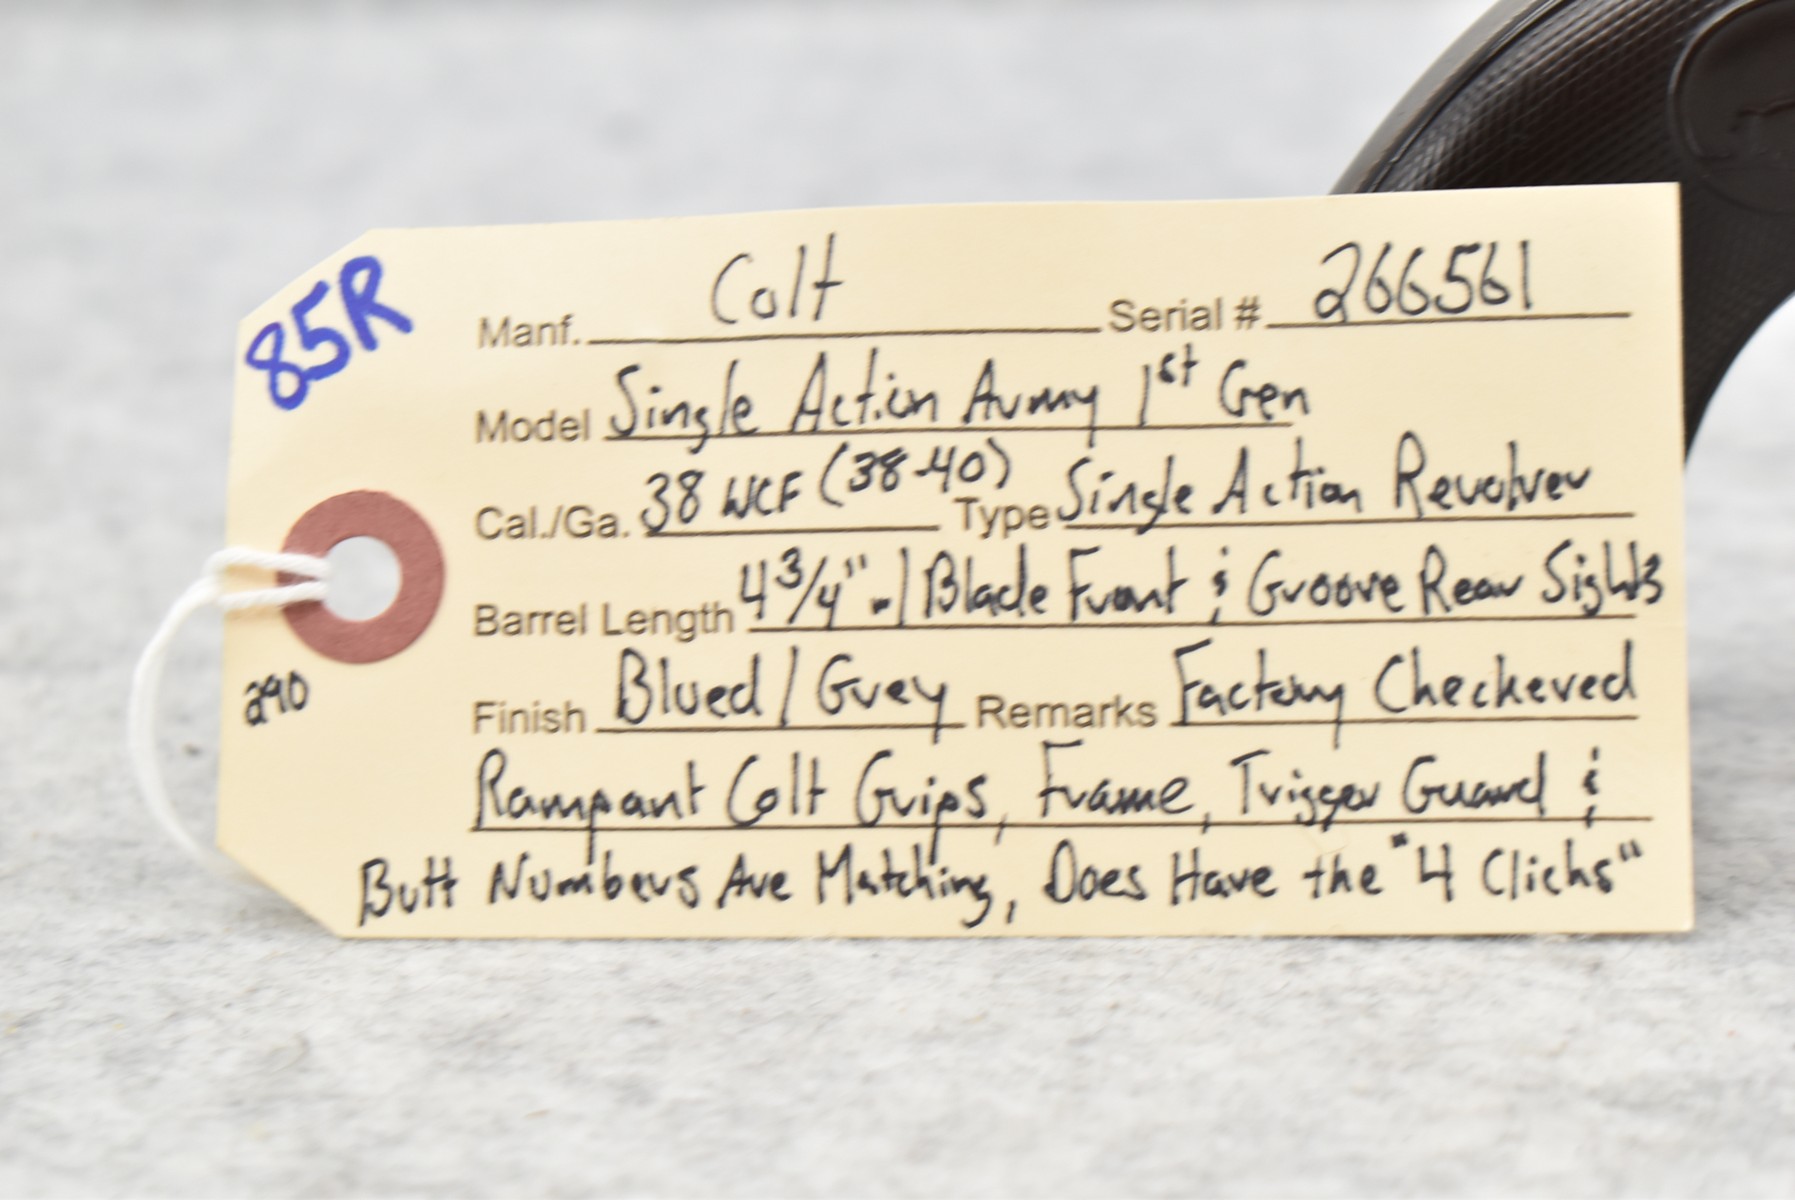 85R
Manf. Colt Serial # 266561
Model Single Action Army 1st Gen
Cal./Ga. 38 WCF (38-40) Type Single Action Revolver
Barrel Length 4 3/4" w/ Blade Front & Groove Rear Sights
290
Finish Blued / Grey Remarks Factory Checkered
Rampant Colt Grips, Frame, Trigger Guard &
Butt Numbers Are Matching, Does Have the "4 Clicks"